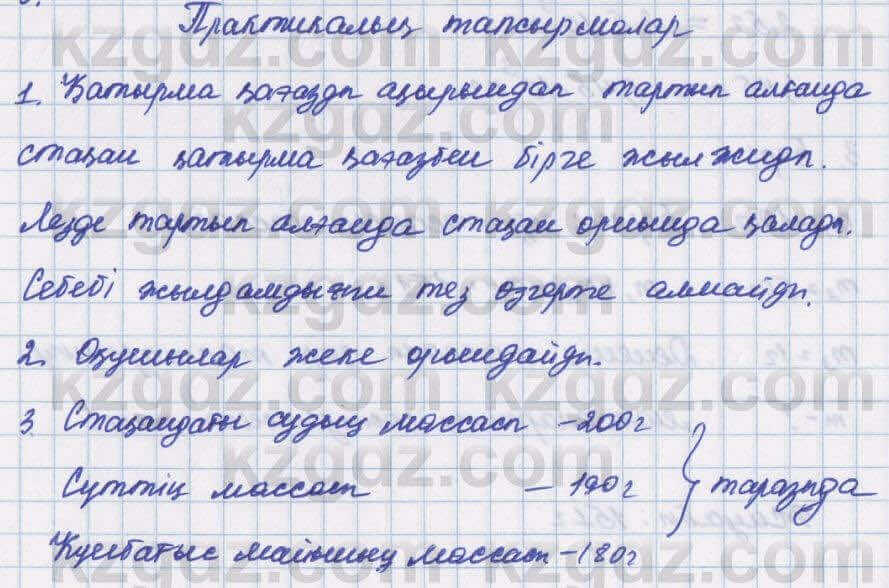 Практикалық тапсырмалар
1. Қатырма қағазды ақырындап тартып алғанда
стақан қатырма қағазбен бірге жылжиды.
Лезде тартып алғанда стақан орнында қалады.
Себебі жылдамдығын тез өзгерте алмайды.
2. Оқушылар жеке орындайды.
3. Стақандағы судың массасы – 200г
Сүттің массасы – 190г } таразыда
Күнбағыс майының массасы – 180г
kzgdz.com